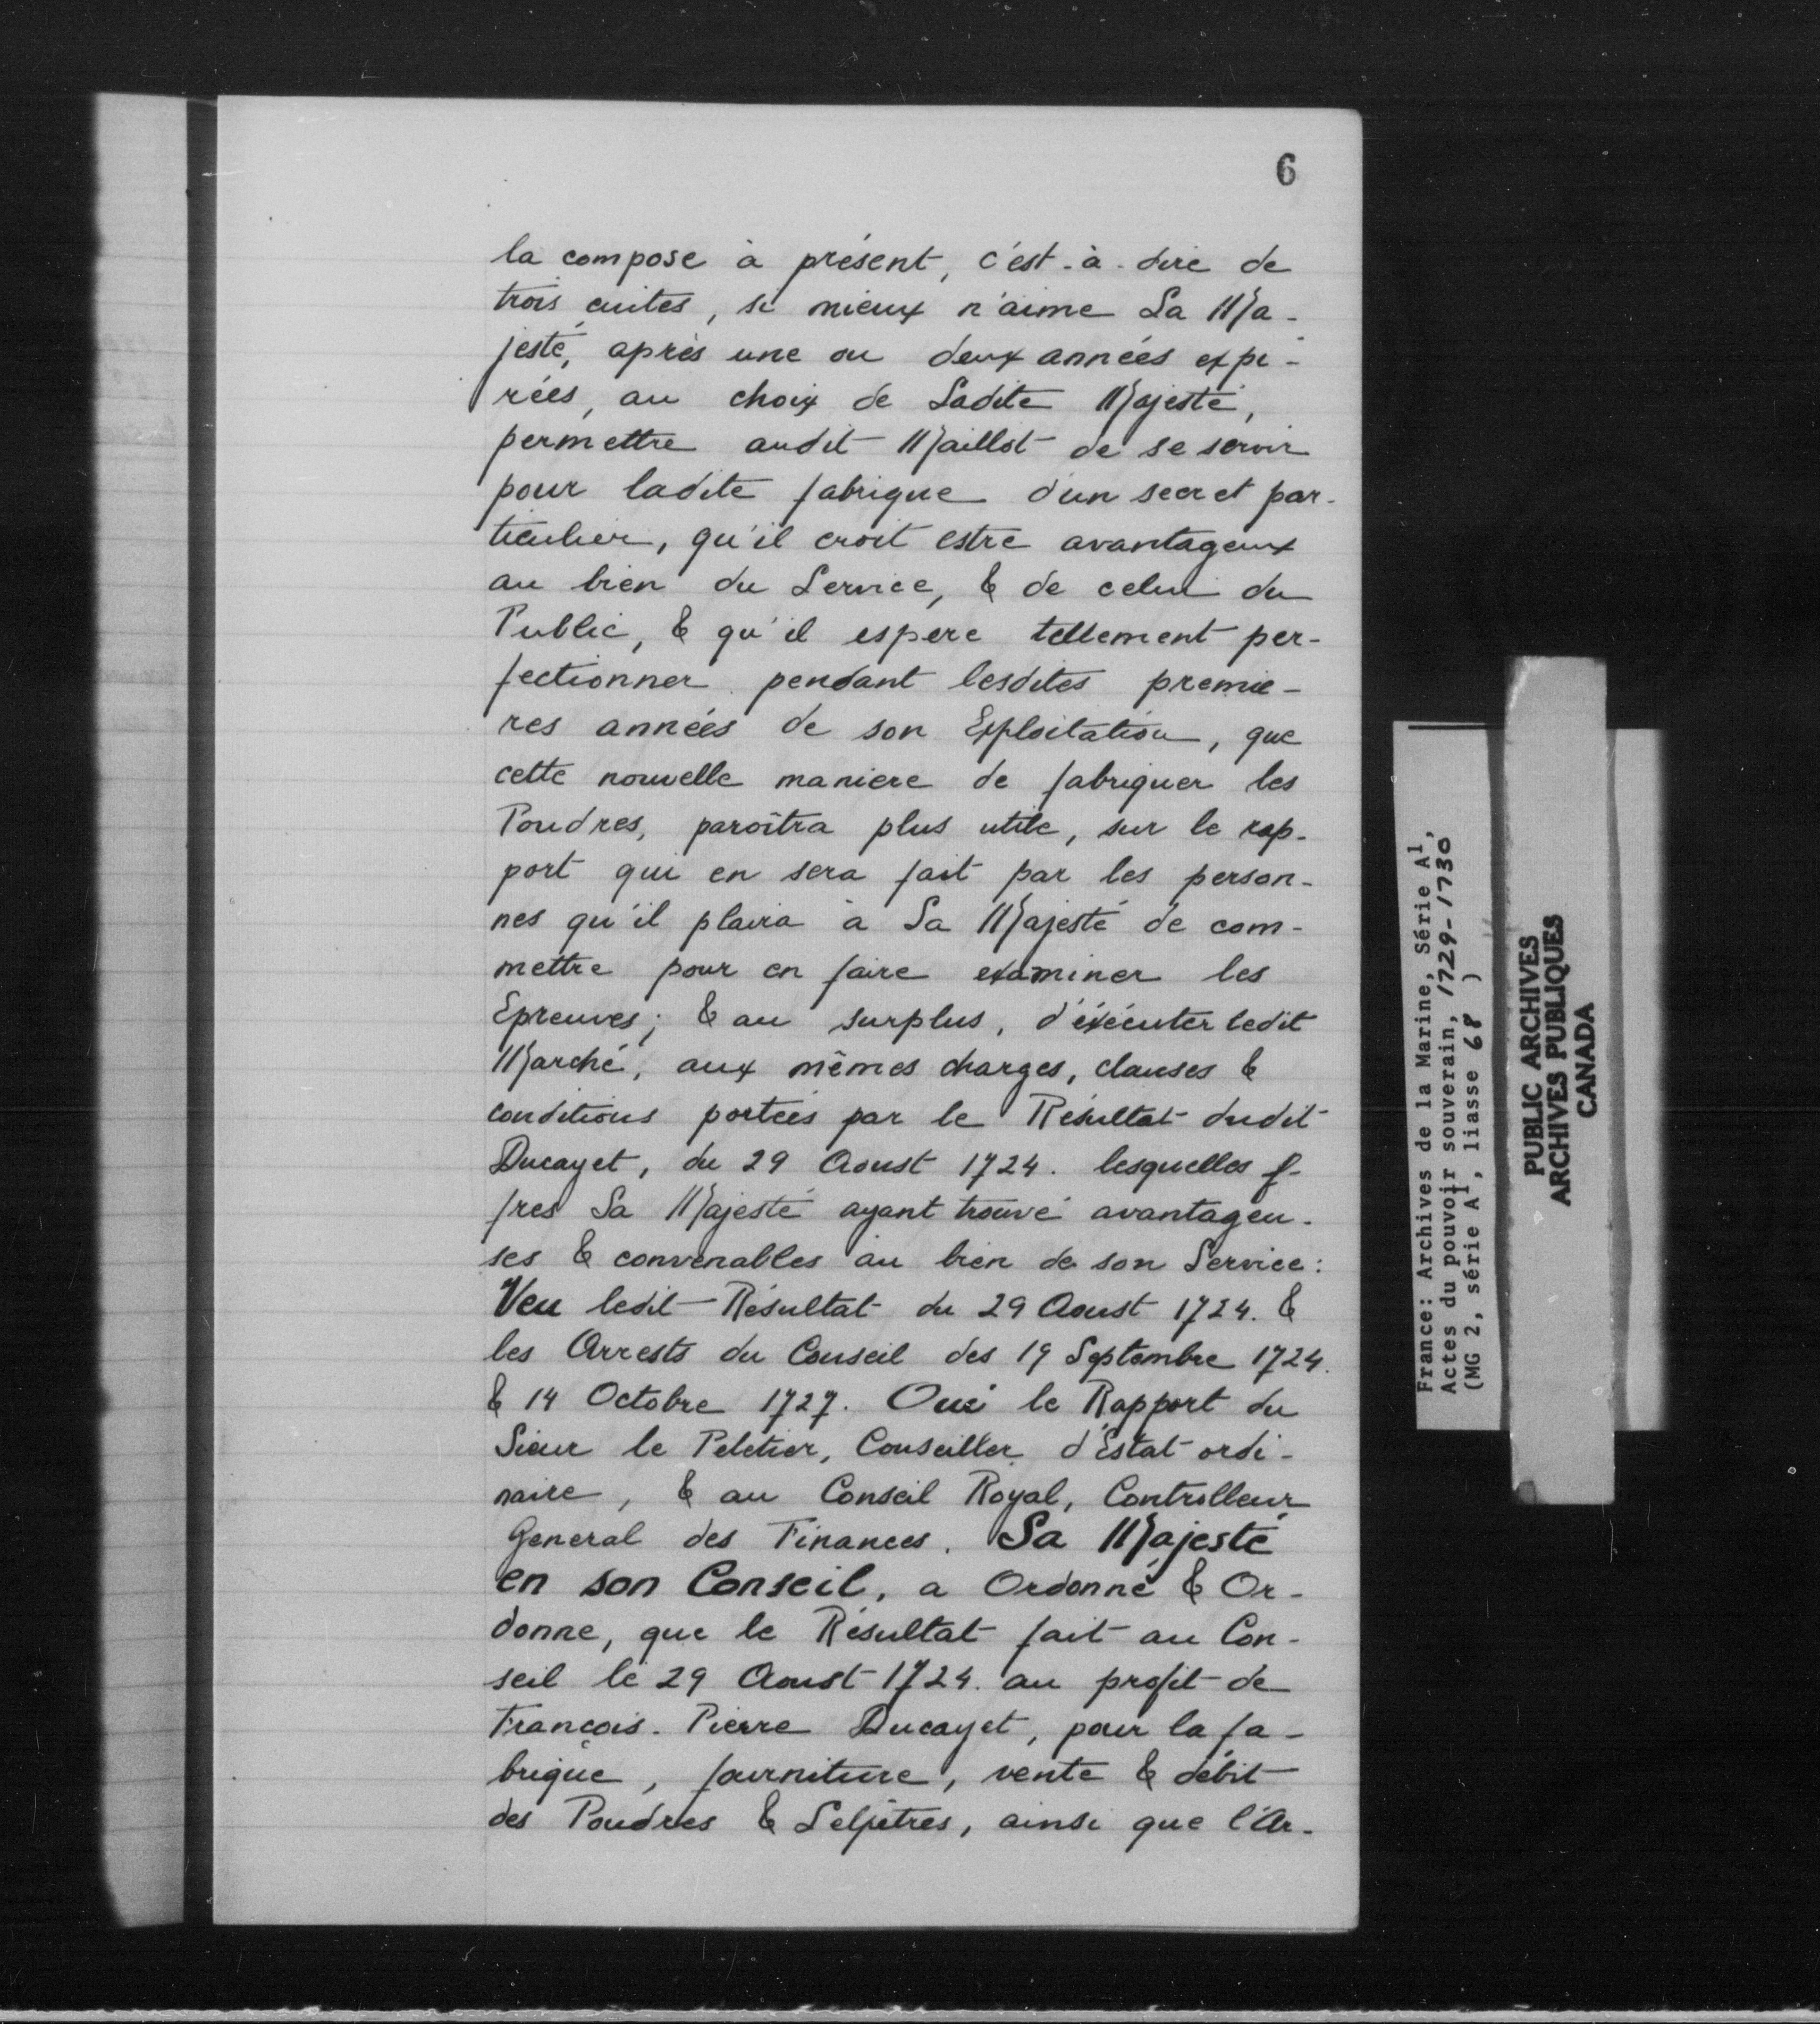 6
la compose à présent, c'est-à-dire de
trois cuites, si mieux n'aime Sa Ma-
jesté, après une ou deux années expi-
rées, au choix de Sadite Majesté,
permettre audit Maillot de se servir
pour ladite fabrique d'un secret par-
ticulier, qu'il croit estre avantageux
au bien du Service, & de celui du
Public, & qu'il espere tellement per-
fectionner pendant lesdites premie-
res années de son Exploitation, que
cette nouvelle maniere de fabriquer les
Poudres, paroîtra plus utile, sur le rap-
port qui en sera fait par les person-
nes qu'il plaira à Sa Majesté de com-
mettre pour en faire examiner les
Epreuves; & au surplus, d'éxécuter ledit
Marché, aux mêmes charges, clauses &
conditions portées par le Résultat dudit
Ducayet, du 29 Aoust 1724. lesquelles of-
fres Sa Majesté ayant trouvé avantageu-
ses & convenables au bien de son Service:
Veu ledit Résultat du 29 Aoust 1724. &
les Arrests du Conseil des 19 Septembre 1724.
& 14 Octobre 1727. Oui le Rapport du
Sieur le Peletier, Conseiller d'Estat ordi-
naire, & au Conseil Royal, Controlleur
General des Finances. Sa Majesté
en son Conseil, a Ordonné & Or-
donne, que le Résultat fait au Con-
seil le 29 Aoust 1724. au profit de
François-Pierre Ducayet, pour la fa-
brique, fourniture, vente & débit
des Poudres & Selpêtres, ainsi que l'Ar-
France: Archives de la Marine, Série A1,
Actes du pouvoir souverain, 1729-1730
(MG 2, série A1, liasse 68 )
PUBLIC ARCHIVES
ARCHIVES PUBLIQUES
CANADA